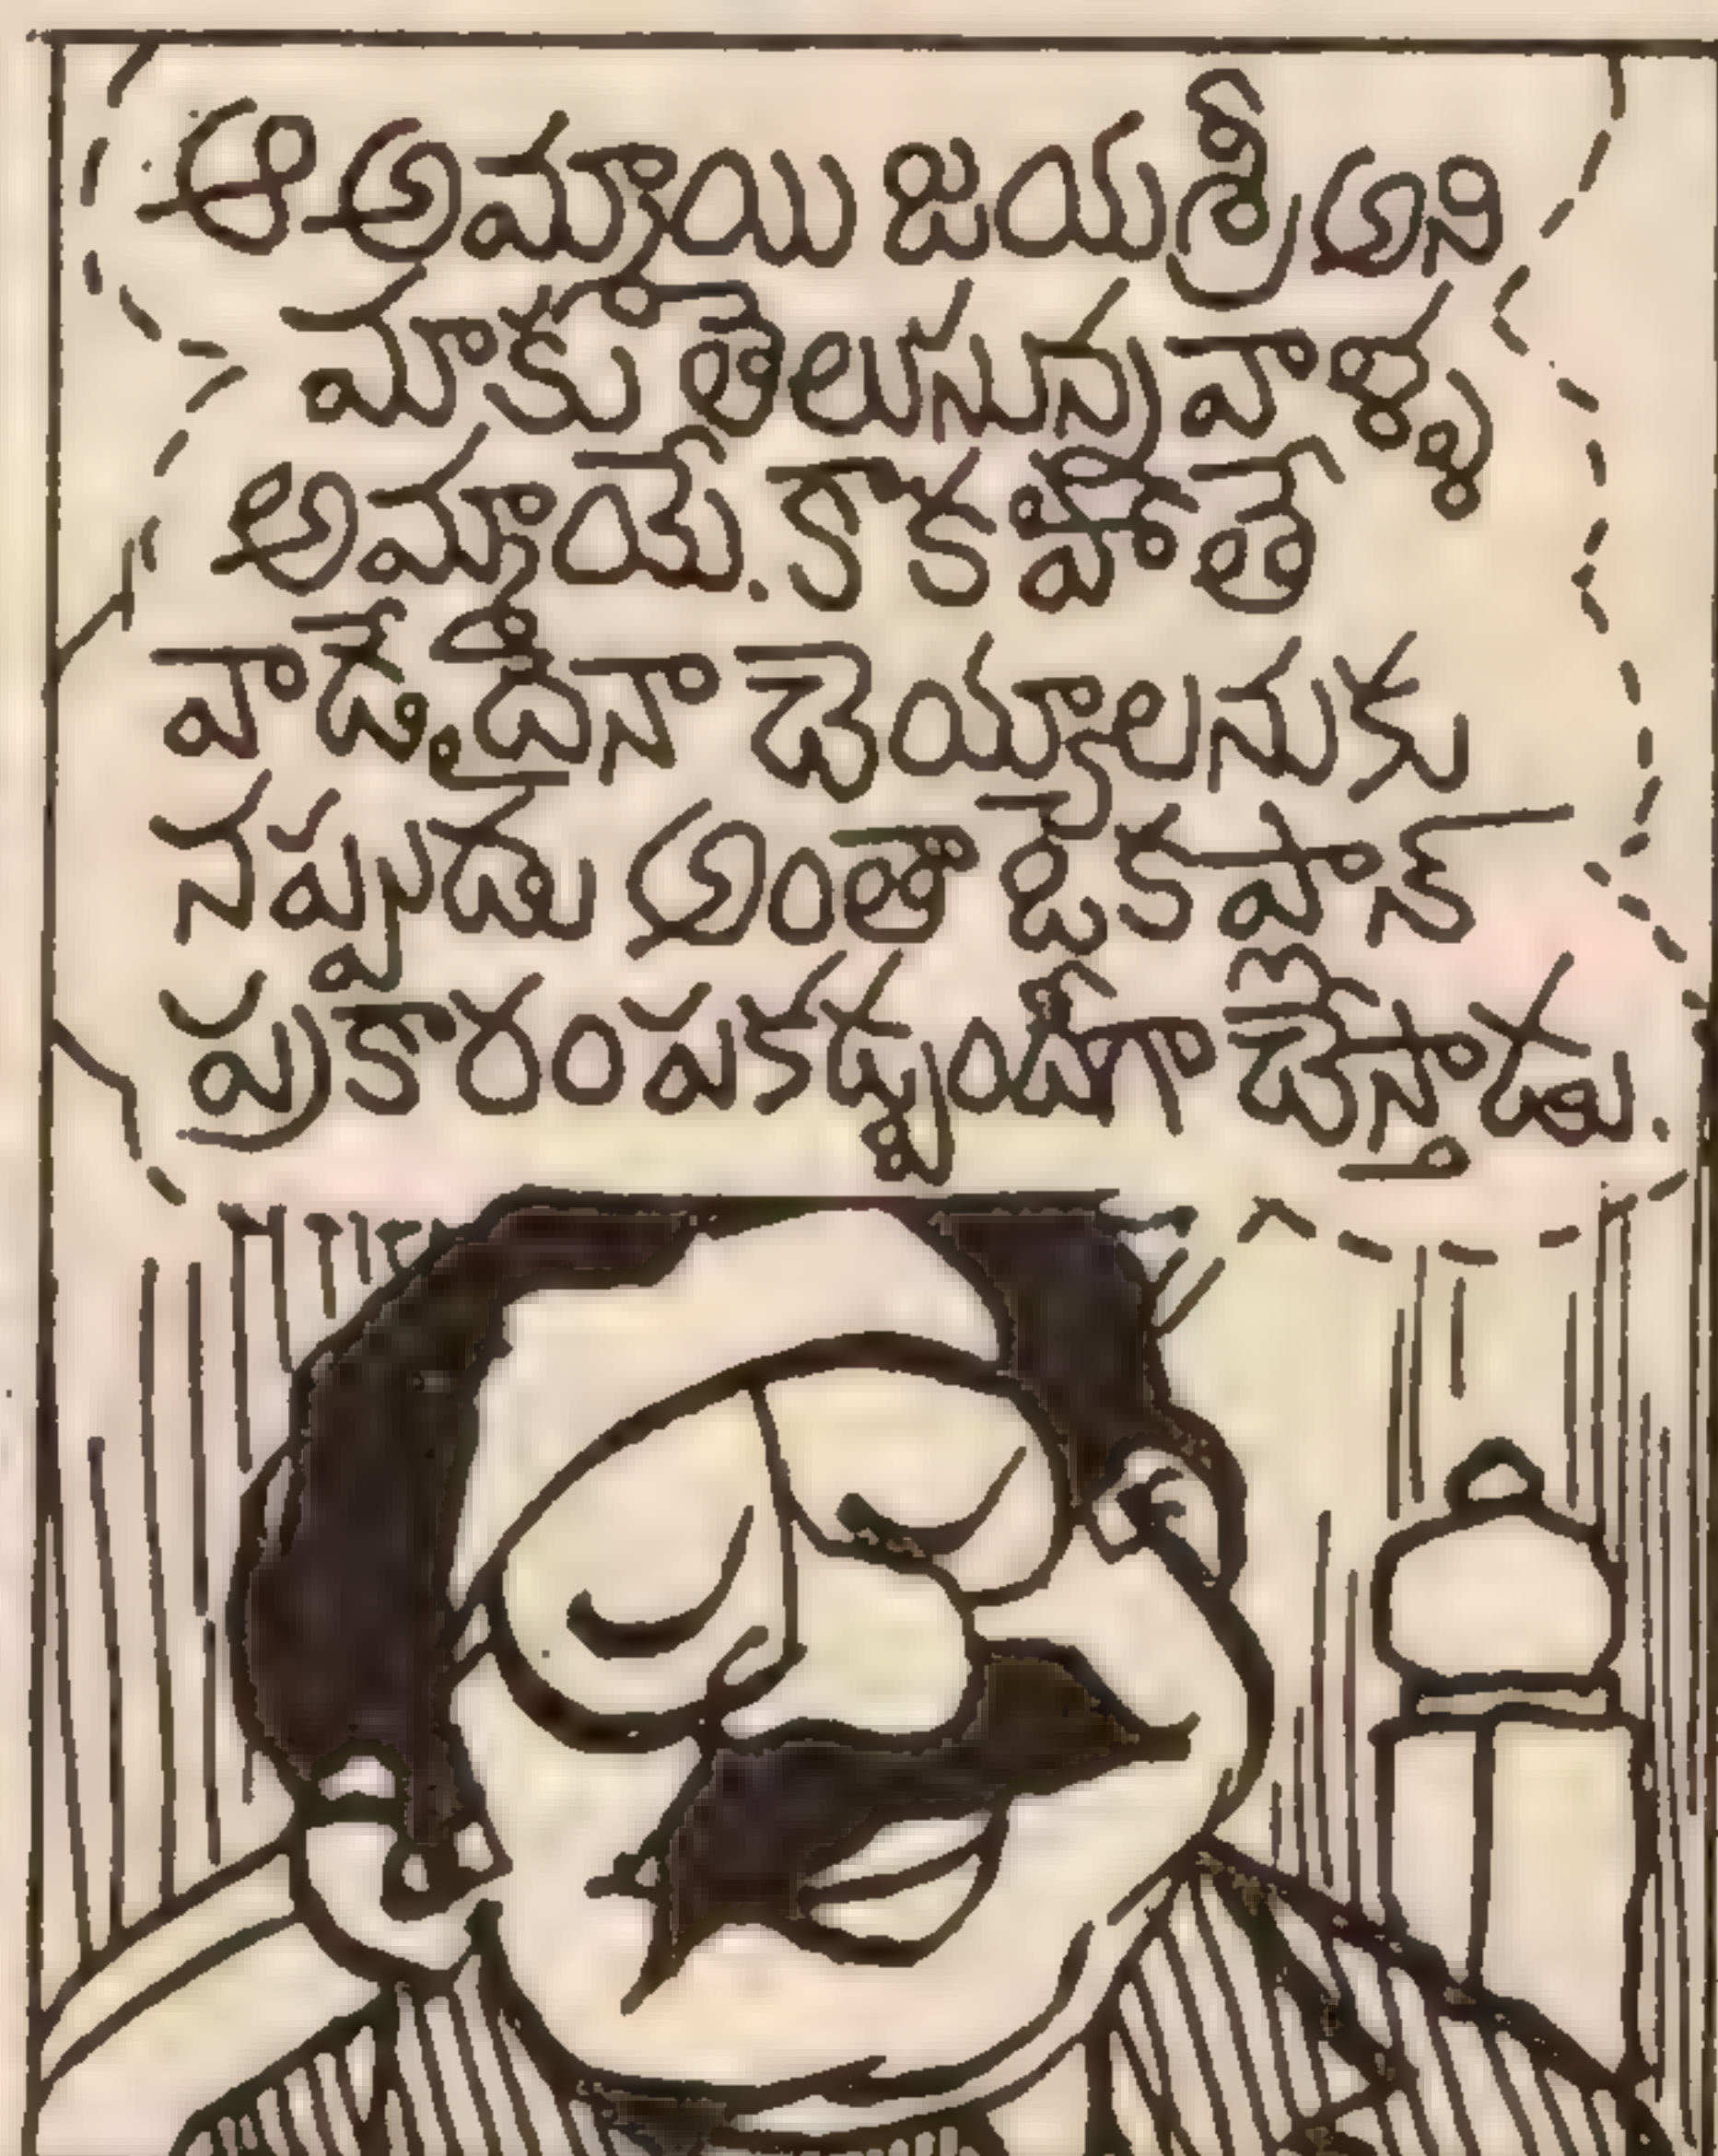 ఆ అమ్మాయి జయశ్రీ అని
మాకు తెలుసున్నవాళ్ళ
అమ్మాయే. కాకపోతే
వాడేదైనా చెయ్యాలనుకు
నప్పుడు అంతా ఒకపాన్
ప్రకారం పకడ్బందీగా చేస్తాడు.